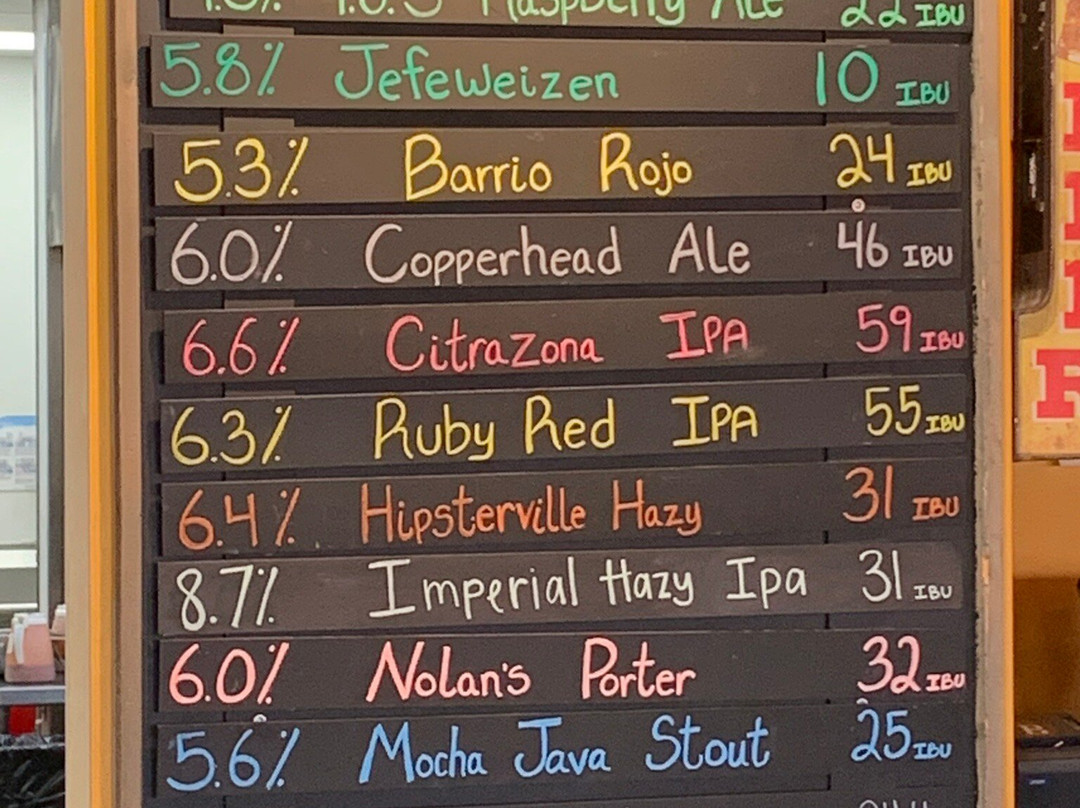 Raspberry Ale 22 IBU
5.8% Jefeweizen 10 IBU
5.3% Barrio Rojo 24 IBU
6.0% Copperhead Ale 46 IBU
6.6% Citrazona IPA 59 IBU
6.3% Ruby Red IPA 55 IBU
6.4% Hipsterville Hazy 31 IBU
8.7% Imperial Hazy Ipa 31 IBU
6.0% Nolan's Porter 32 IBU
5.6% Mocha Java Stout 25 IBU
R